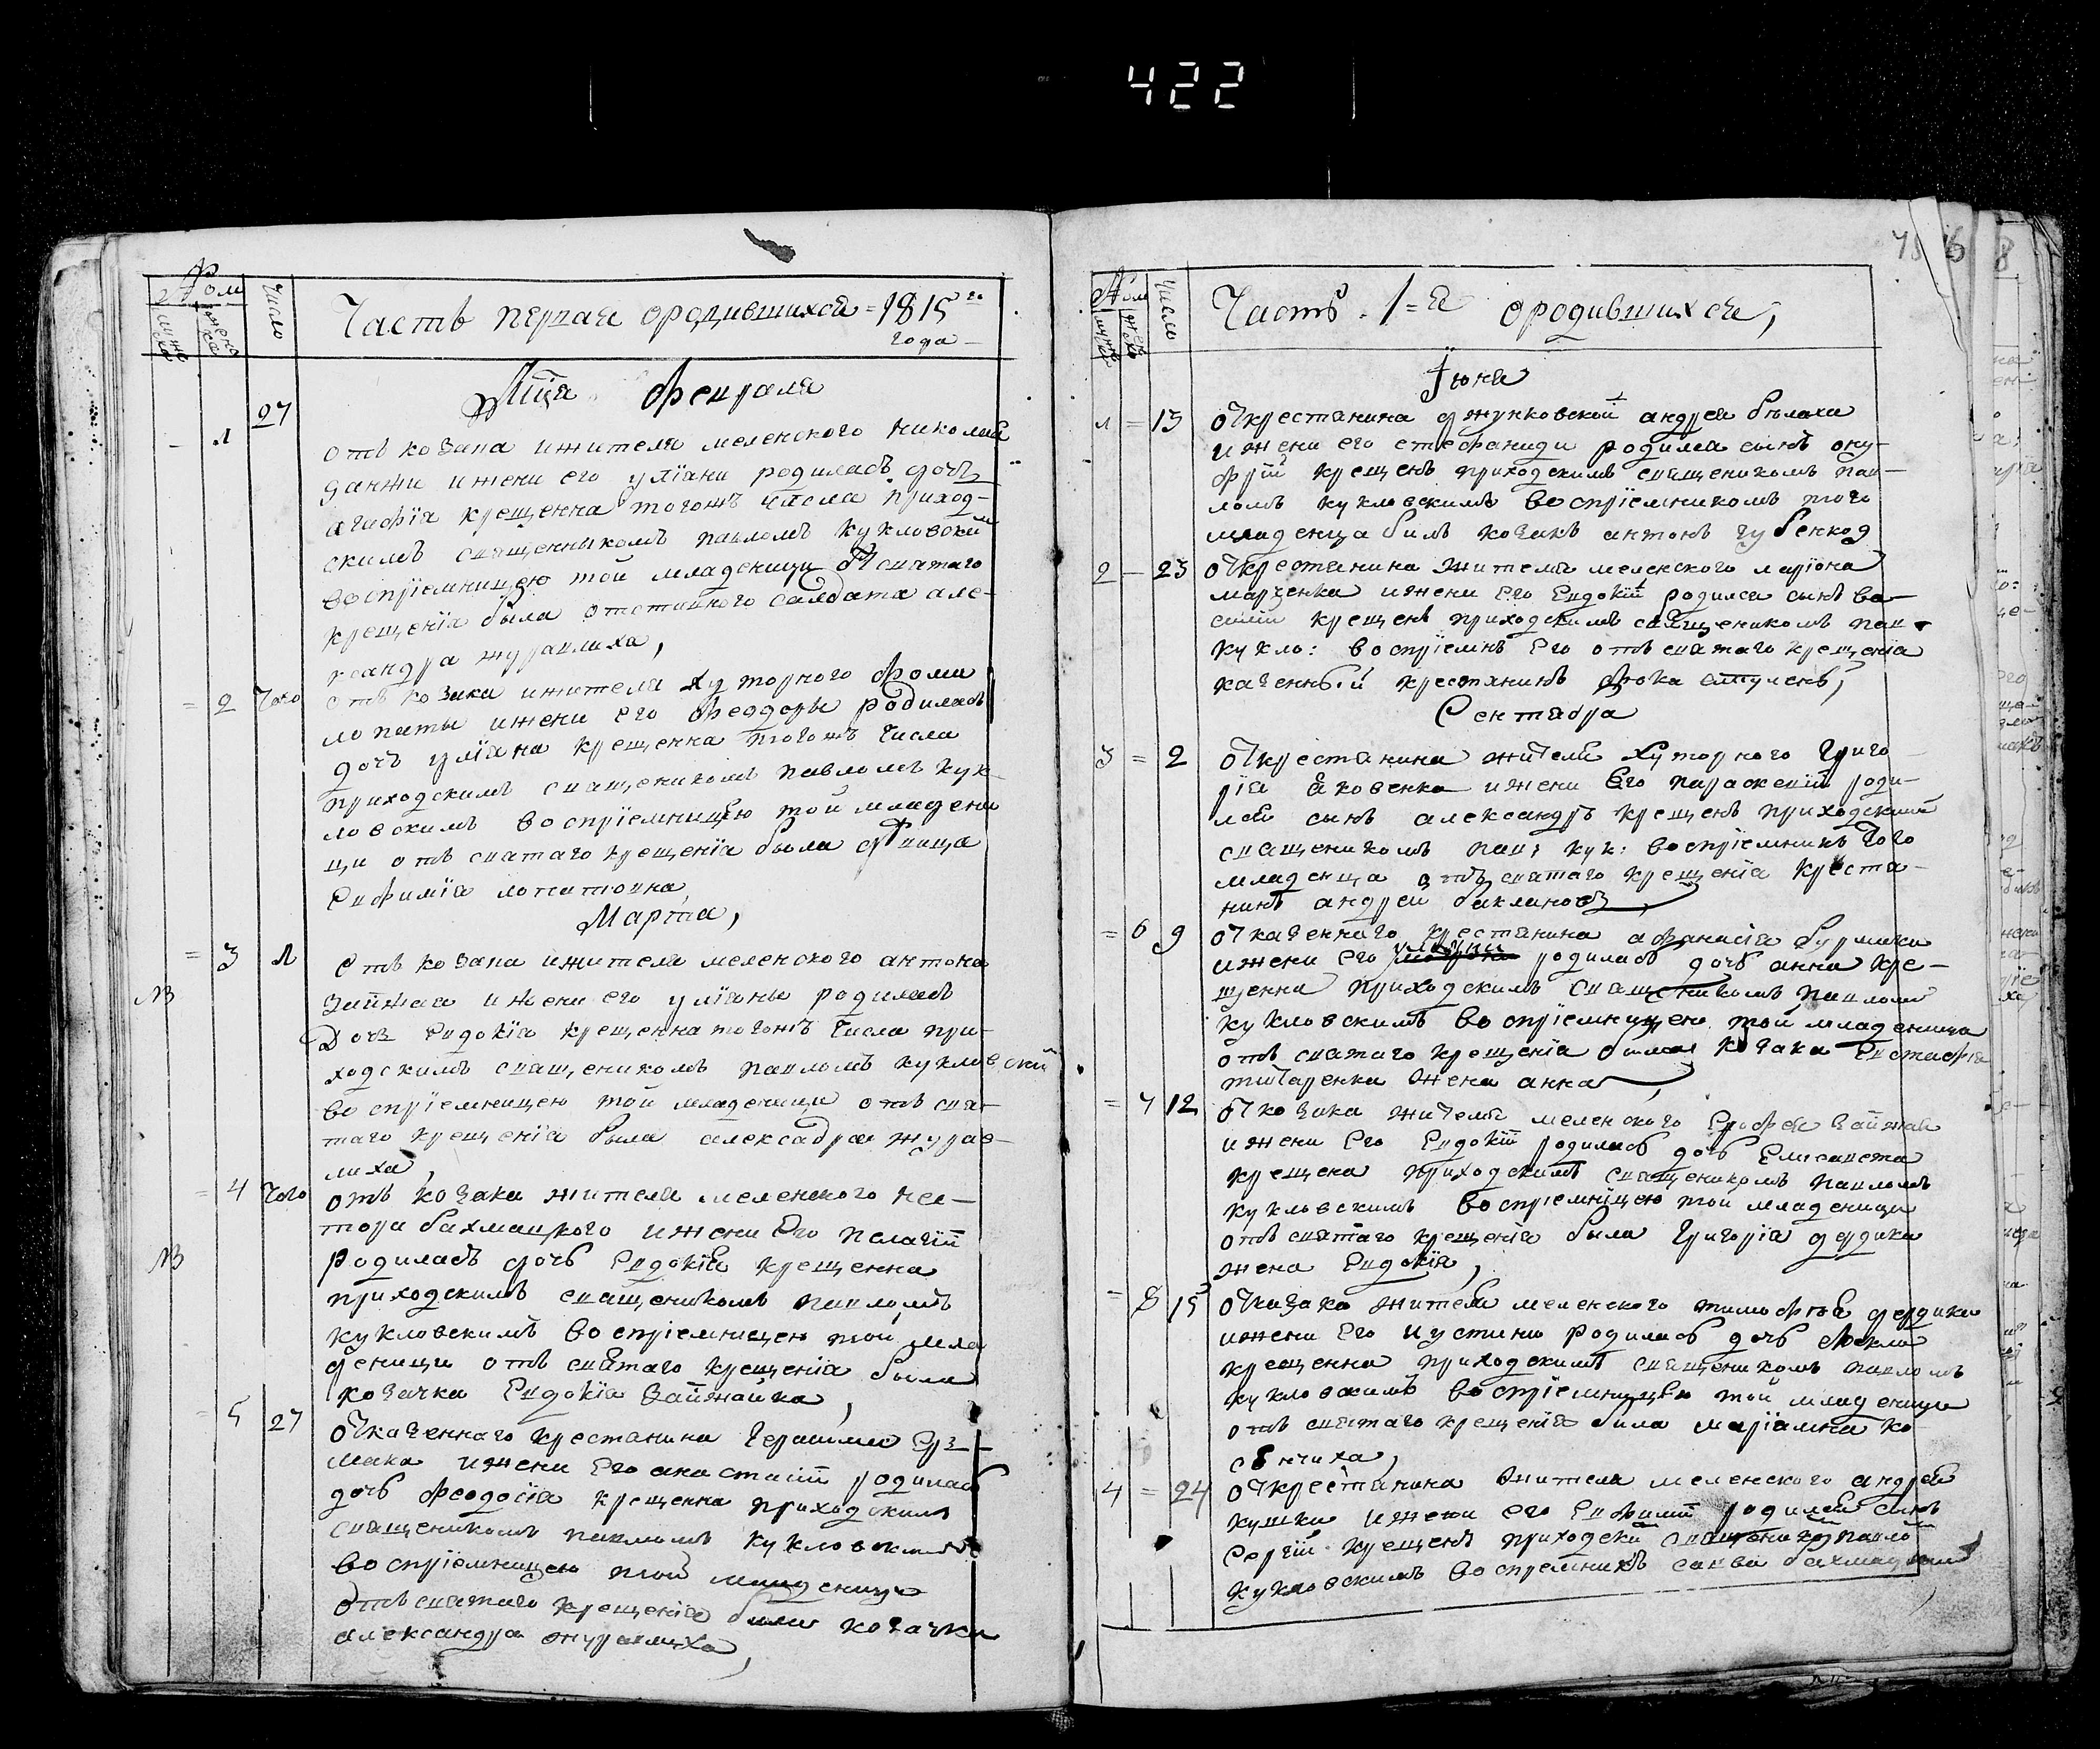 422
Часть первая ородившихся = 1815 го
года
Число
Мца февраля
1 27
отъ козака ижителя меленского николая
данжи ижени его улїани родиласъ дочъ
агафїа крещенна тогожъ числа приход-
скимъ священникомъ павломъ кукловский
воспрїемницею той младеници от святаго
крещенїя была отставного салдата але-
ксандра журавлиха,
2 того
отъ козака ижителя хуторного фоми
лопаты ижени его феодоры родиласъ
дочъ улїяна крещенна тогожъ числа
приходскимъ священикомъ павломъ кук-
ловскимъ воспрїемницею той младени
ци отъ святаго крещенїя была девица
евфимїа лопатовна,
Марта,
3 1
отъ козака ижителя меленского антона
зайжая ижени его улїяны родиласъ
дочъ евдокїя крещенна тогожъ числа при-
ходскимъ священикомъ павломъ кукловский
воспрїемницею той младеници отъ свя-
таго крещенїя была алексадра журав-
лиха,
NB
4 того
отъ козака жителя меленского нес-
тора бахмацкого ижени его пелагїи
родиласъ дочъ евдокїя крещенна
приходскимъ священикомъ павломъ
кукловскимъ воспрїемницею той мла
деници отъ святаго крещенїя была
козачка евдокїя зайжайка,
NB
5 27
от казенного крестянина герасима ер-
мака ижени его анастасїи родиласъ
дочъ феодосїя крещенна приходскимъ
священикомъ павломъ кукловскимъ
воспрїемницею той младеници
отъ святаго крещенїя была козачка
александра журавлиха,
Число
Часть 1=я ородившихся,
Їюня
1 = 13
от крестянина джунковской андрея белаха
ижени его стефаниди родился сынъ ону-
фрїй крещенъ приходскимъ священикомъ пав-
ломъ кукловскимъ воспрїемникомъ того
младенца билъ козакъ антонъ губенко
2 - 23
от крестянина жителя меленского марїона
марченка ижени его евдокїи родился сынъ ва-
силїй крещенъ приходскимъ священикомъ пав
кукло: воспрїемнъ его отъ святаго крещенїя
казенный крестянинъ фока
Сентабра
3 = 2
от крестянина жителя хуторного григо
рїя яковенка ижени его параскевїи роди-
лся сынъ александръ крещенъ приходский
священикомъ пав: кук: воспрїемникъ того
младенца отъ святаго крещенїя крестя-
нинъ андрей баклановъ,
= 6 9
от казенного крестянина афанасїя бурмаки
ижени его родиласъ дочъ анна кре-
щенна приходскимъ священикомъ павломъ
кукловскимъ воспрїемницею той младеница
отъ святаго крещенїя была козака евстафїя
титаренка жена анна,
= 7 12
от козака жителя меленского ерофея зайжая
ижени его евдокїи родиласъ дочъ елисавета
крещена приходскимъ священикомъ павломъ
кукловскимъ воспрїемнїцею той младеници
отъ святаго крещенїя была григорїя дердика
жена евдокїя,
= 8 15
от казака жителя меленского тимофея дердики
ижени его иустини родиласъ дочъ фекла
крещенна приходскимъ священикомъ павломъ
кукловскимъ воспрїемницею той младеници
отъ святаго крещенїя била марїамна ко-
сенчиха,
4 = 24
от крестянина жителя меленского андрея
кушки ижени его евфимїи родился синъ
сергїй крещенъ приходски священико павло
кукловскимъ воспрїемникъ савва бахмацкий